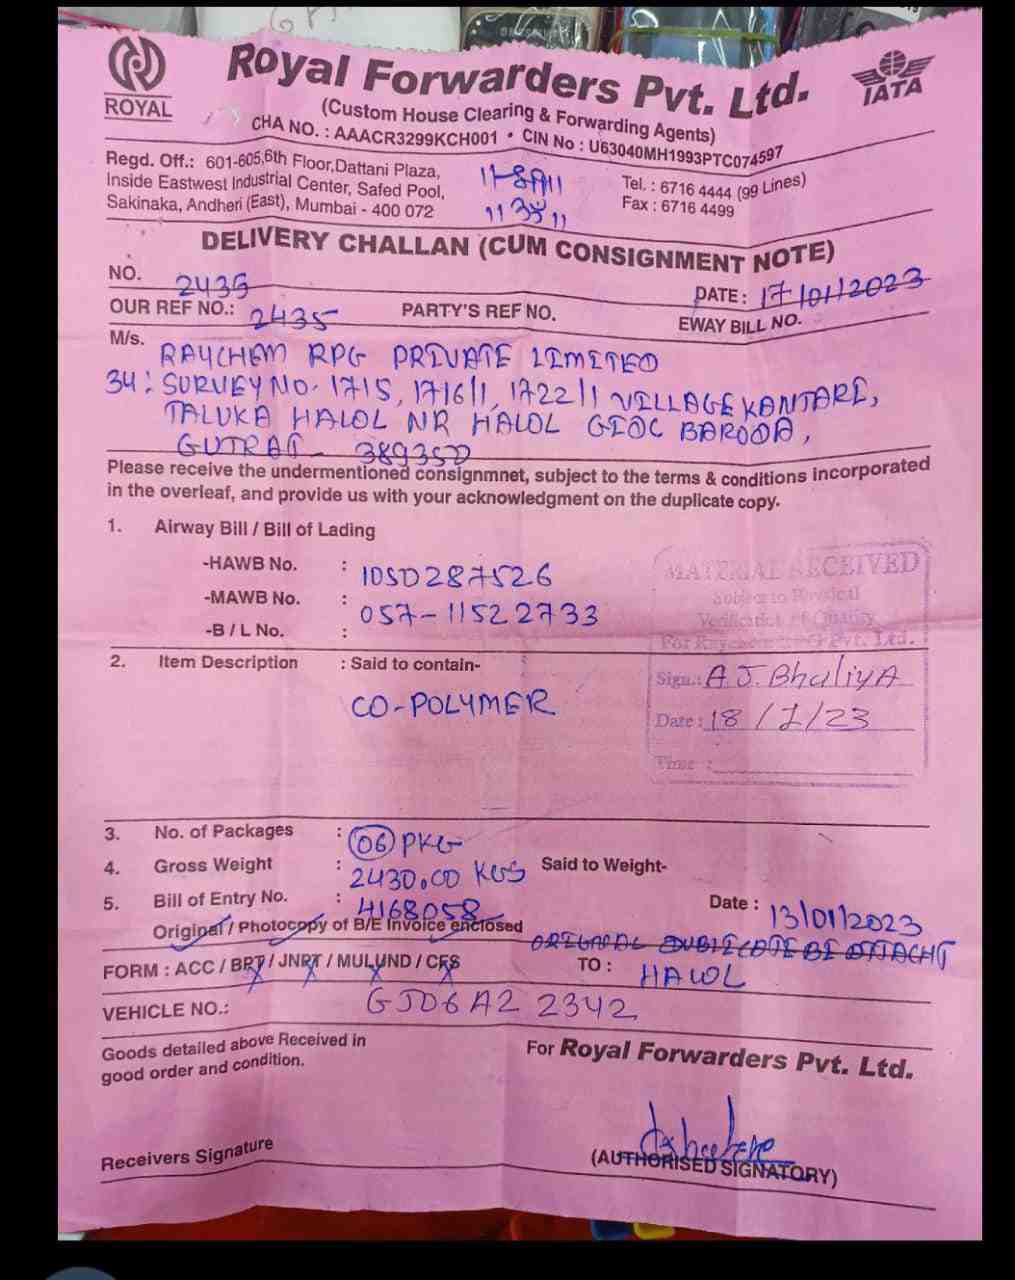 ROYAL
Royal Forwarders Pvt. Ltd.
IATA
(Custom House Clearing & Forwarding Agents)
CHA NO. : AAACR3299KCH001 • CIN No : U63040MH1993PTC074597
Regd. Off.: 601-605,6th Floor,Dattani Plaza,
Inside Eastwest Industrial Center, Safed Pool,
Sakinaka, Andheri (East), Mumbai - 400 072
Tel. : 6716 4444 (99 Lines)
Fax : 6716 4499
DELIVERY CHALLAN (CUM CONSIGNMENT NOTE)
NO. 2435
DATE : 17/01/2023
OUR REF NO.: 2435 PARTY'S REF NO. EWAY BILL NO.
M/s. RAYCHEM RPG PRIVATE LIMITED
34: SURVEY NO. 1715, 1716/1, 1722/1 VILLAGE KANTARI,
TALUKA HALOL NR HALOL GIDC BARODA,
GUJRAT - 389350
Please receive the undermentioned consignmnet, subject to the terms & conditions incorporated
in the overleaf, and provide us with your acknowledgment on the duplicate copy.
1. Airway Bill / Bill of Lading
-HAWB No. : 10SD287526
-MAWB No. : 057-11522733
-B / L No. :
MATERIAL RECEIVED
Subject to Physical
Verification of Quality
For Raychem RPG Pvt. Ltd.
Sign.: A.J. BhaliyA
Date : 18/1/23
Time :
2. Item Description : Said to contain-
CO-POLYMER
3. No. of Packages : 06 PKG
4. Gross Weight : 2430.00 KGS Said to Weight-
5. Bill of Entry No. : 4168058 Date : 13/01/2023
Original / Photocopy of B/E Invoice enclosed
FORM : ACC / BPT / JNPT / MULUND / CFS TO : HALOL
VEHICLE NO.: GJ06AZ 2342
Goods detailed above Received in
good order and condition.
For Royal Forwarders Pvt. Ltd.
Receivers Signature
(AUTHORISED SIGNATORY)